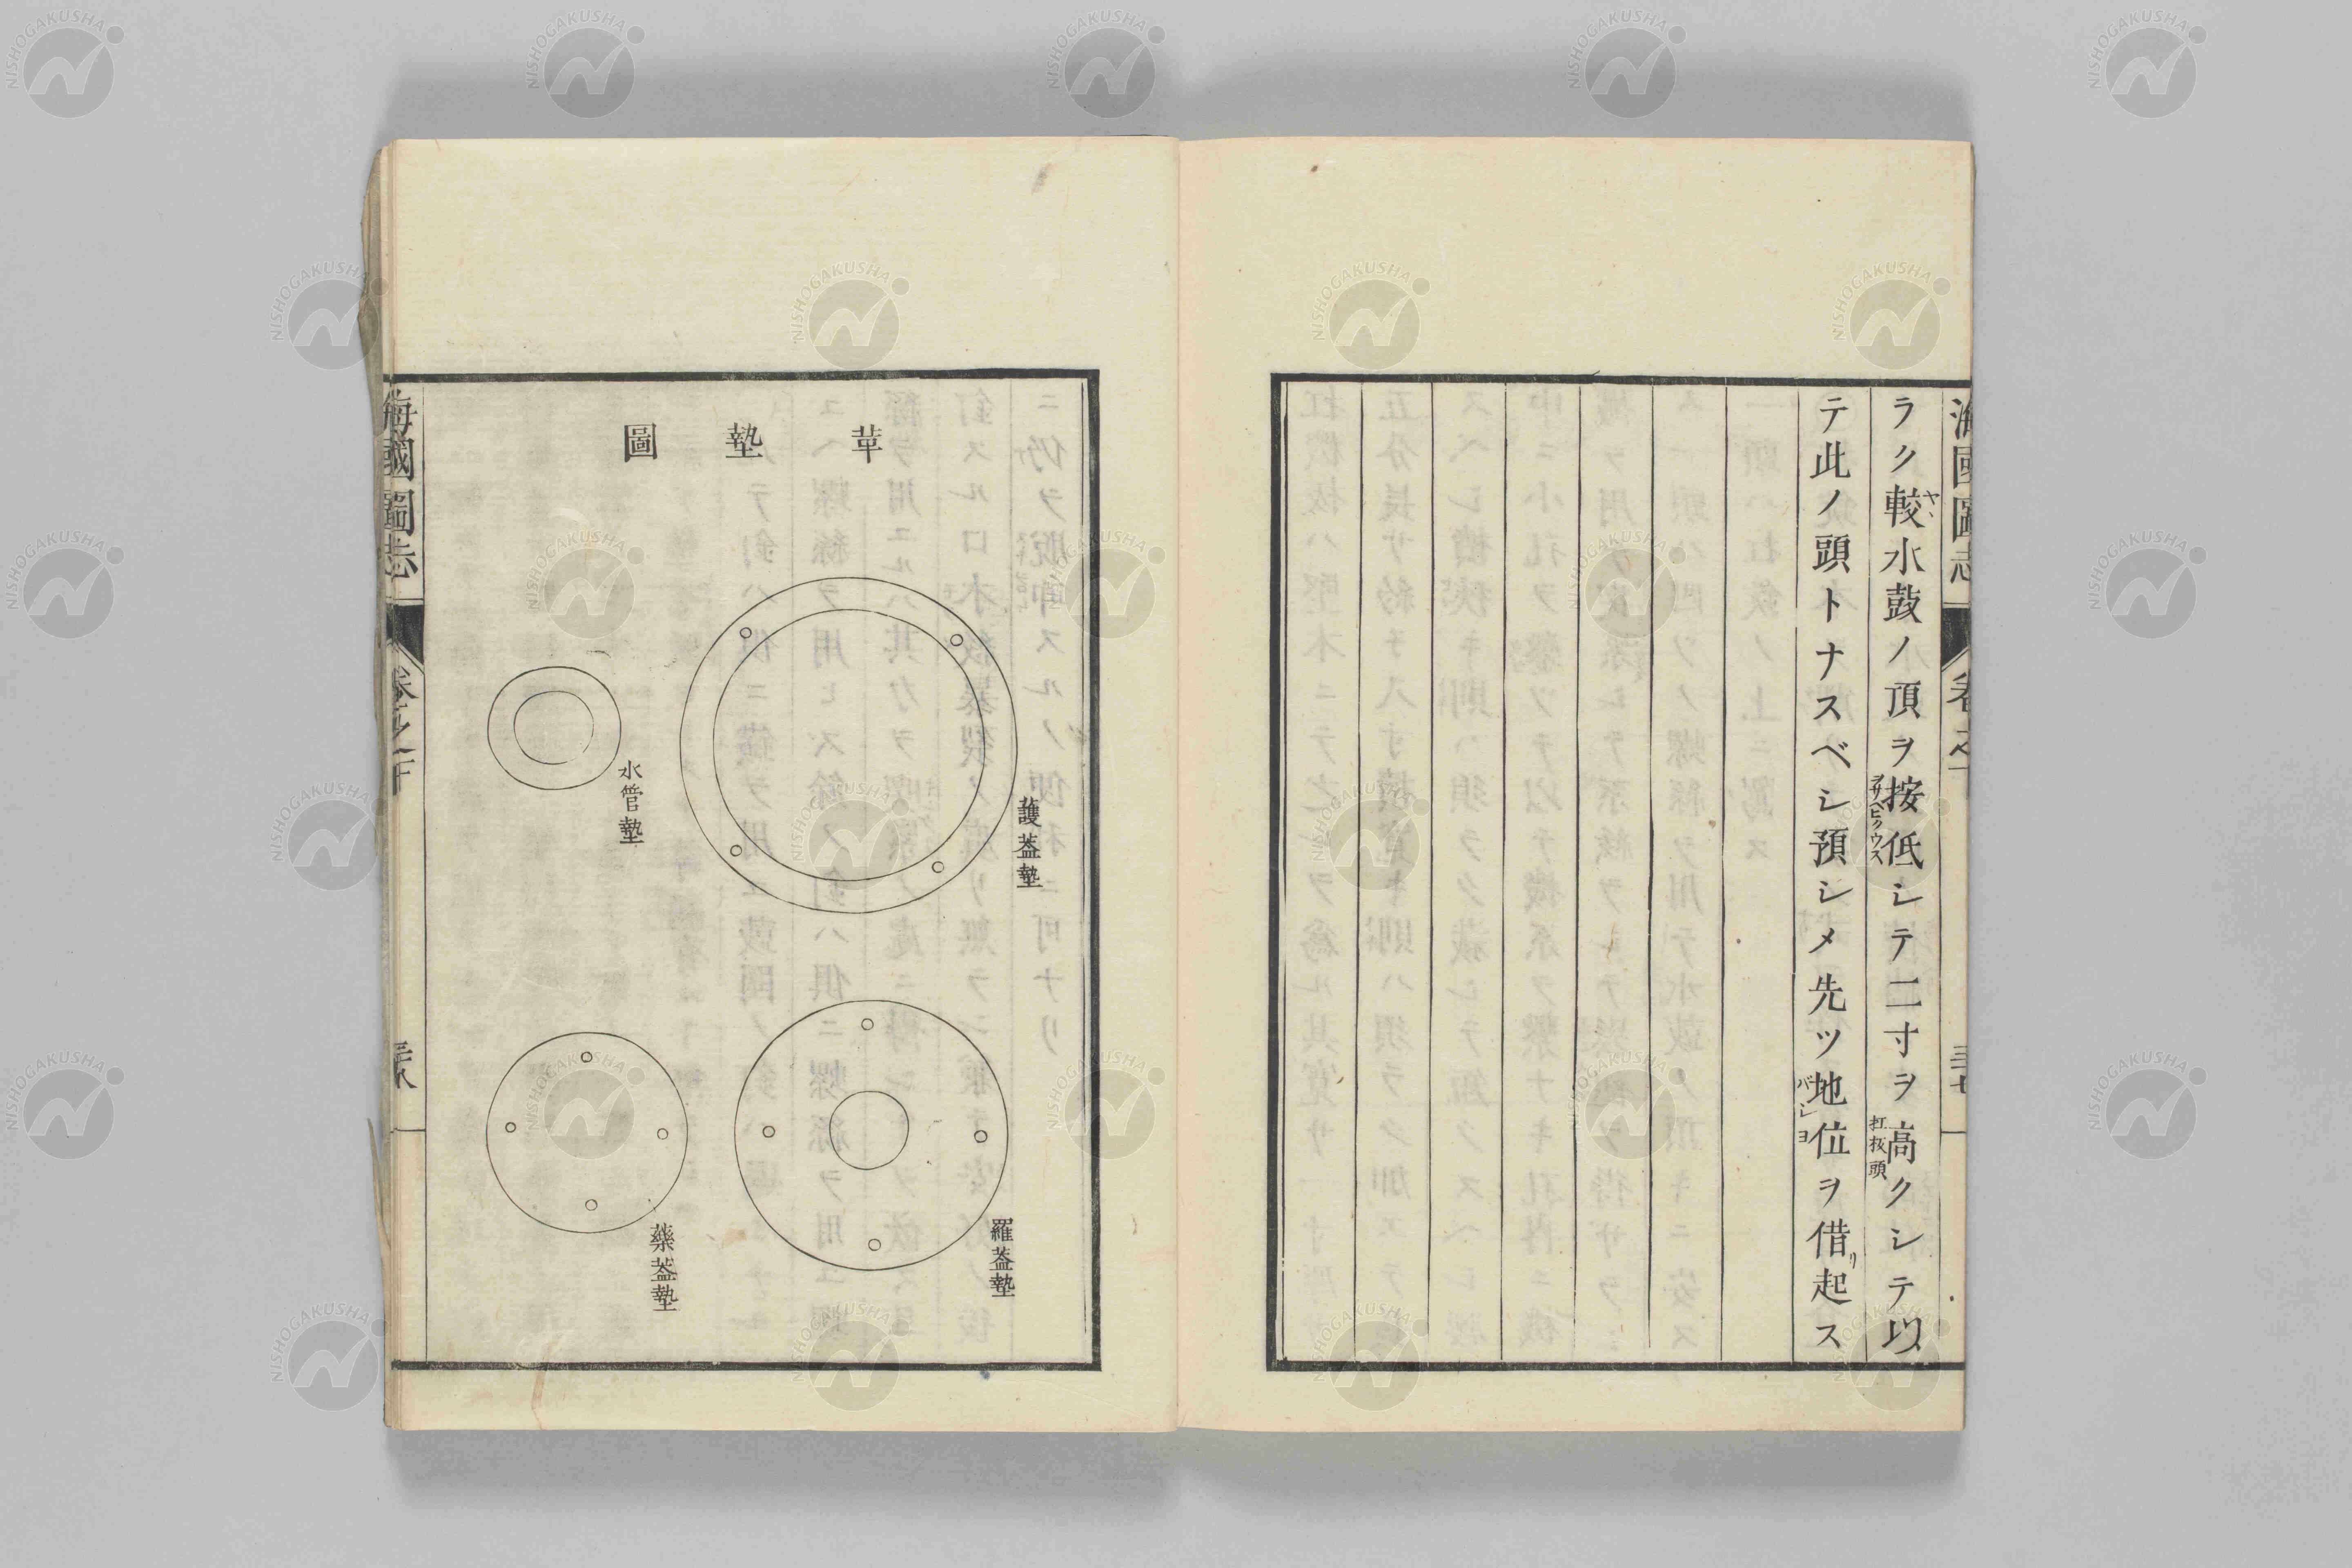 ラク較水鼓ノ頂ヲ按低シテ二寸ヲ高クシテ以
テ此ノ頭トナスベシ預シメ先ツ地位ヲ借起ス
ヤヽ
扛板頭
バシヨ
リ
革墊圖
護蓋墊
水管墊
羅蓋墊
藥蓋墊
海國圖志
卷之二十
三十八
NISHOGAKUSHA